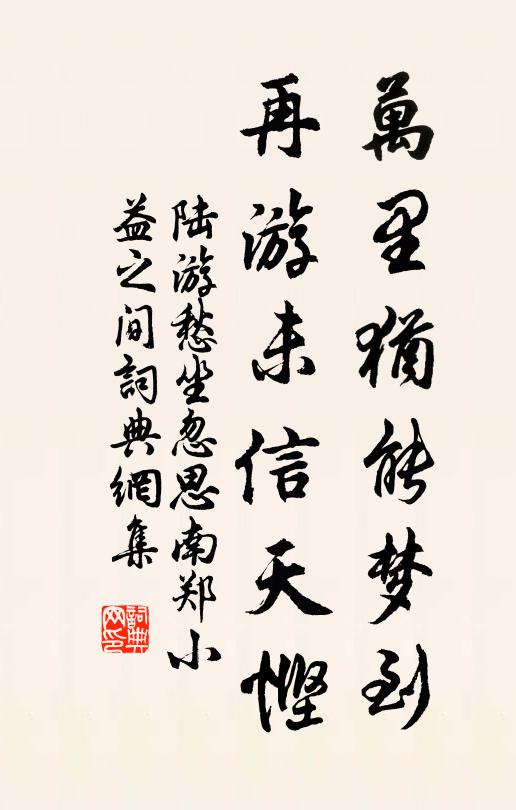 萬里猶能梦到
再游未信天慳
陆游愁坐忽思南郑小
益之间詞典網集
詞典网印